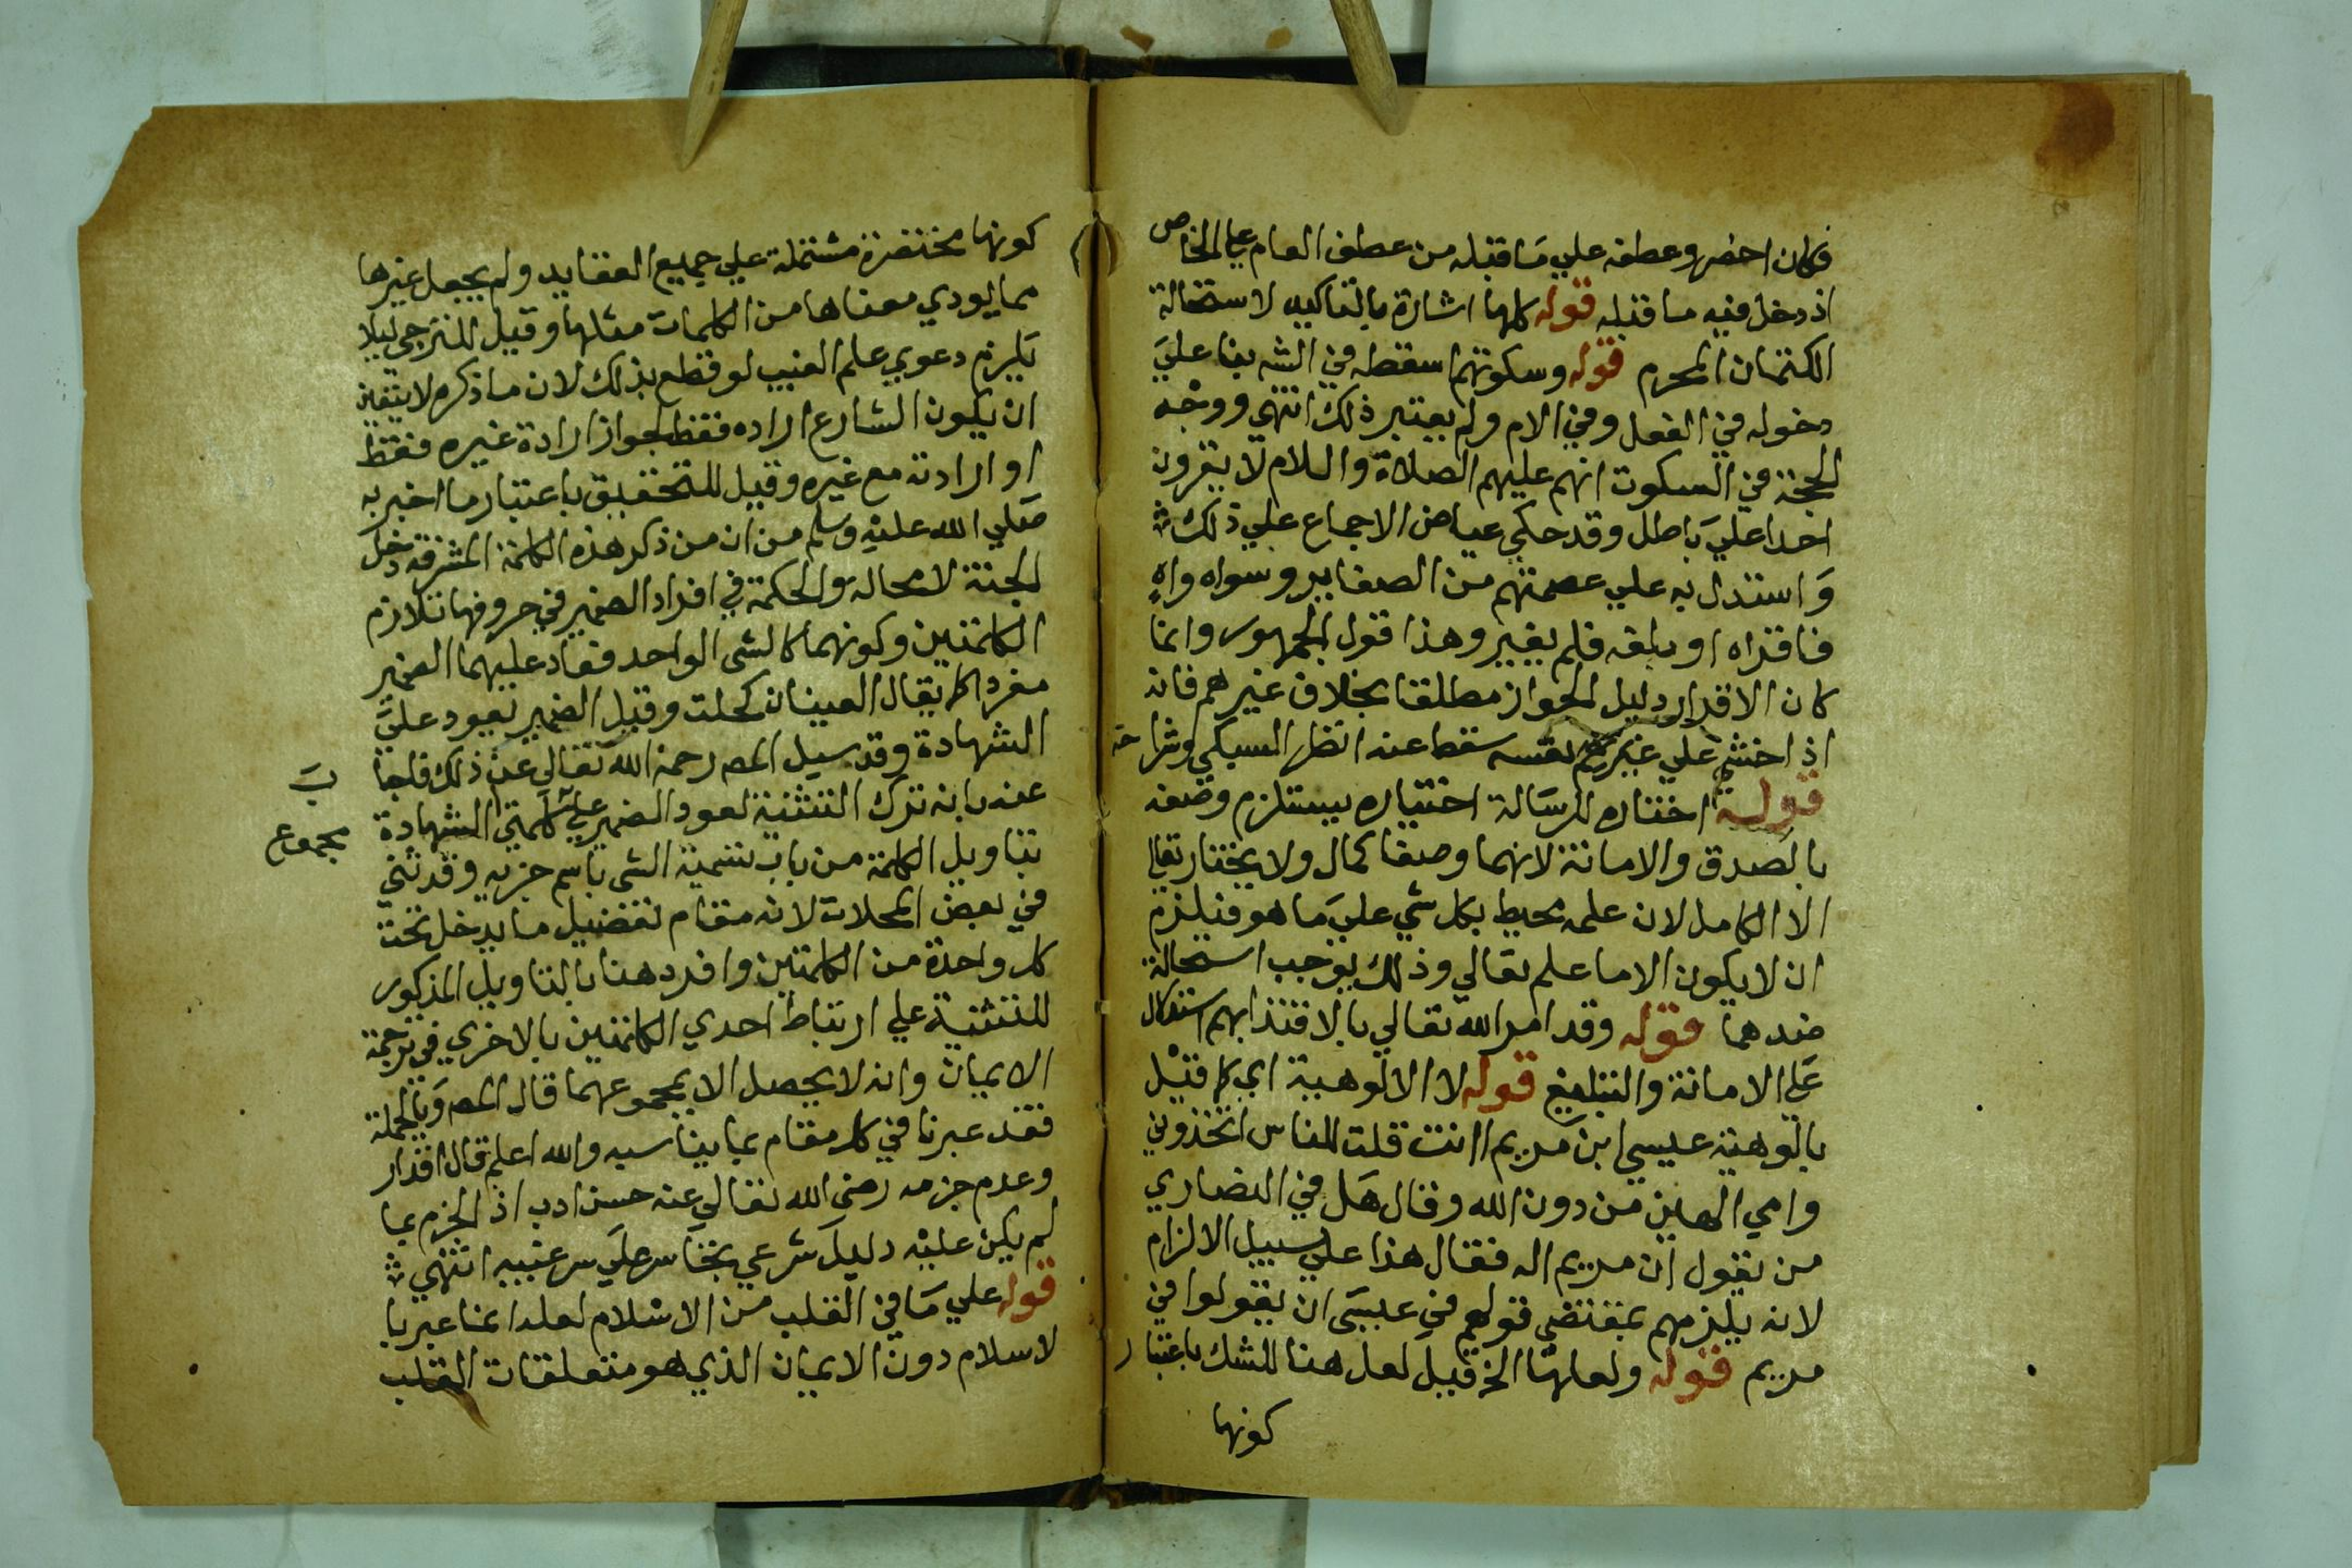 فكان احضر وعطفه علي ما قبله من عطف العام علي الخاص
اذ دخل فيه ما قبله قوله كلها اشارة بالتاكيد لاستحالة
الكتمان المحرم قوله وسكوتهم اسقطه في الشه بنا علي
دخوله في الفعل وفي الام ولم يعتبر ذلك انتهي ووجه
الحجة في السكوت انهم عليهم الصلاة والسلام لا يقرون
احدا علي باطل وقد حكي عياض الاجماع علي ذلك
واستدل به علي عصمتهم من الصغاير وسواه واه
فاقراه او بلغه فلم يغير وهذا قول الجمهور وانما
كان الاقرار دليل الجواز مطلقا بخلاف غيرهم فانه
اذ اخشي علي نفسه سقط عنه انظر السبكي وشراحه
قوله اختاره للرسالة اختياره يستلزم وصفه
بالصدق والامانة لانهما وصفا كمال ولا يختار تعالي
الا الكامل لان علمه محيط بكل شي علي ما هو فيلزم
ان لا يكون الا ما علم تعالي وذلك يوجب استحالة
ضدهما قوله وقد امر الله تعالي بالاقتدا بهم استدلال
علي الامانة والتبليغ قوله لا الالوهية اي كما قيل
بالوهية عيسي ابن مريم اانت قلت للناس اتخذوني
وامي الهين من دون الله وقال هل في النصاري
من يقول ان مريم اله فقال هذا علي سبيل الالزام
لانه يلزمهم بمقتضي قولهم في عيسي ان يقولوا في
مريم قوله ولعلها الخ قيل لعل هنا للشك باعتبار
كونها
كونها مختصرة مشتملة علي جميع العقايد ولم يجعل غيرها
مما يودي معناها من الكلمات مثلها وقيل للترجي ليلا
يلزم دعوي علم الغيب لو قطع بذلك لان ما ذكره لا يتعين
ان يكون الشارع اراده فقط لجواز ارادة غيره فقط
او ارادته مع غيره وقيل للتحقيق باعتبار ما اخبر به
صلي الله عليه وسلم من ان من ذكر هذه الكلمة المشرفة دخل
الجنة لا محالة والحكمة في افراد الضمير في حروفها تلازم
الكلمتين وكونهما كالشي الواحد فعاد عليهما الضمير
مفردا كما يقال العينان كحلت وقيل الضمير يعود علي
الشهادة وقد سيل المص رحمه الله تعالي عن ذلك فاجاب
عنه بانه ترك التثنية لعود الضمير علي كلمتي الشهادة
مجموع
بتاويل الكلمة من باب تسمية الشي باسم جزيه وقد ثني
في بعض المحلات لانه مقام تفضيل ما يدخل تحت
كل واحدة من الكلمتين وافرد هنا بالتاويل المذكور
للتثنية علي ارتباط احدي الكلمتين بالاخري في ترجمة
الايمان وانه لا يحصل الا بمجموعهما قال المص وبالجملة
فقد عبرنا في كل مقام بما يناسبه والله اعلم قال اقدار
وعدم جزمه رضي الله تعالي عنه حسن ادب اذ الجزم بما
لم يكن عليه دليل شرعي تجاسر علي سر غيبه انتهي
قوله علي ما في القلب من الاسلام لعله انما عبر با
لاسلام دون الايمان الذي هو متعلقات القلب